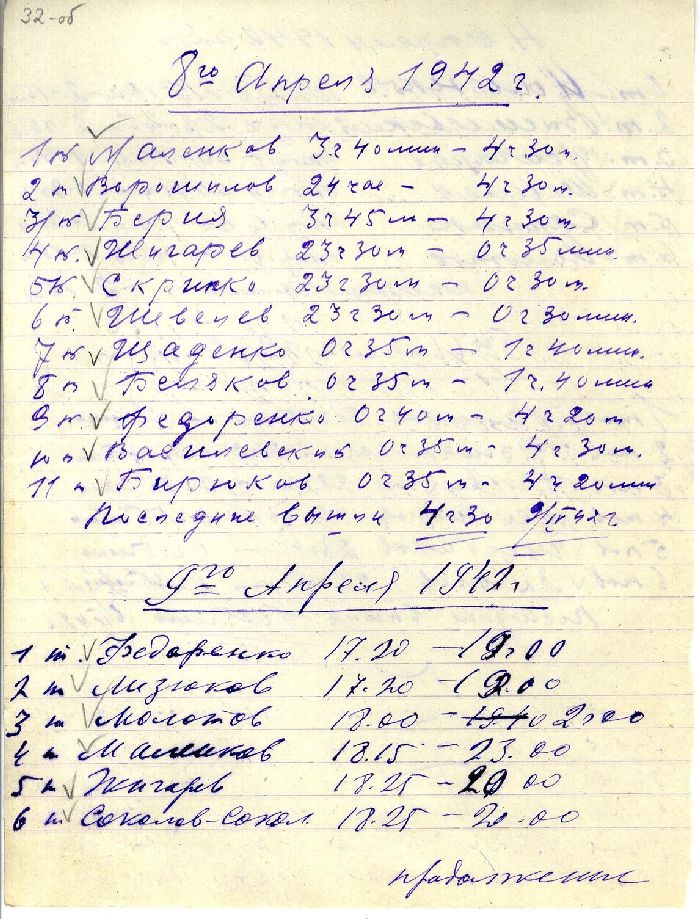 32-об
8го Апреля 1942 г.
1 т. Маленков 3ч 40мин – 4ч 30м.
2 т. Ворошилов 24 час – 4ч 30м.
3 т. Берия 3ч 45м – 4ч 30м.
4 т. Жигарев 23ч 30м – 0ч 35мин
5 т. Скрипко 23ч 30м – 0ч 30м.
6 т. Шевелев 23ч 30м – 0ч 30мин.
7 т. Щаденко 0ч 35м – 1ч 40мин.
8 т. Беляков 0ч 35м – 1ч. 40мин
9 т. Федоренко 0ч 40м – 4ч 20м
10 т. Василевский 0ч 35м – 4ч 30м.
11 т. Бирюков 0ч 35м – 4ч 20мин
Последние вышли 4ч 30 9/IV 42г
9го Апреля 1942г
1 т. Федоренко 17.20 – 19.00
2 т Мизюков 17.20 – 19.00
3 т Молотов 18.00 – 19.40 23.00
4 т Маленков 18.15 – 23.00
5 т Жигарев 18.25 – 20 00
6 т Соколов-Сокол. 18.25 – 20.00
продолжение